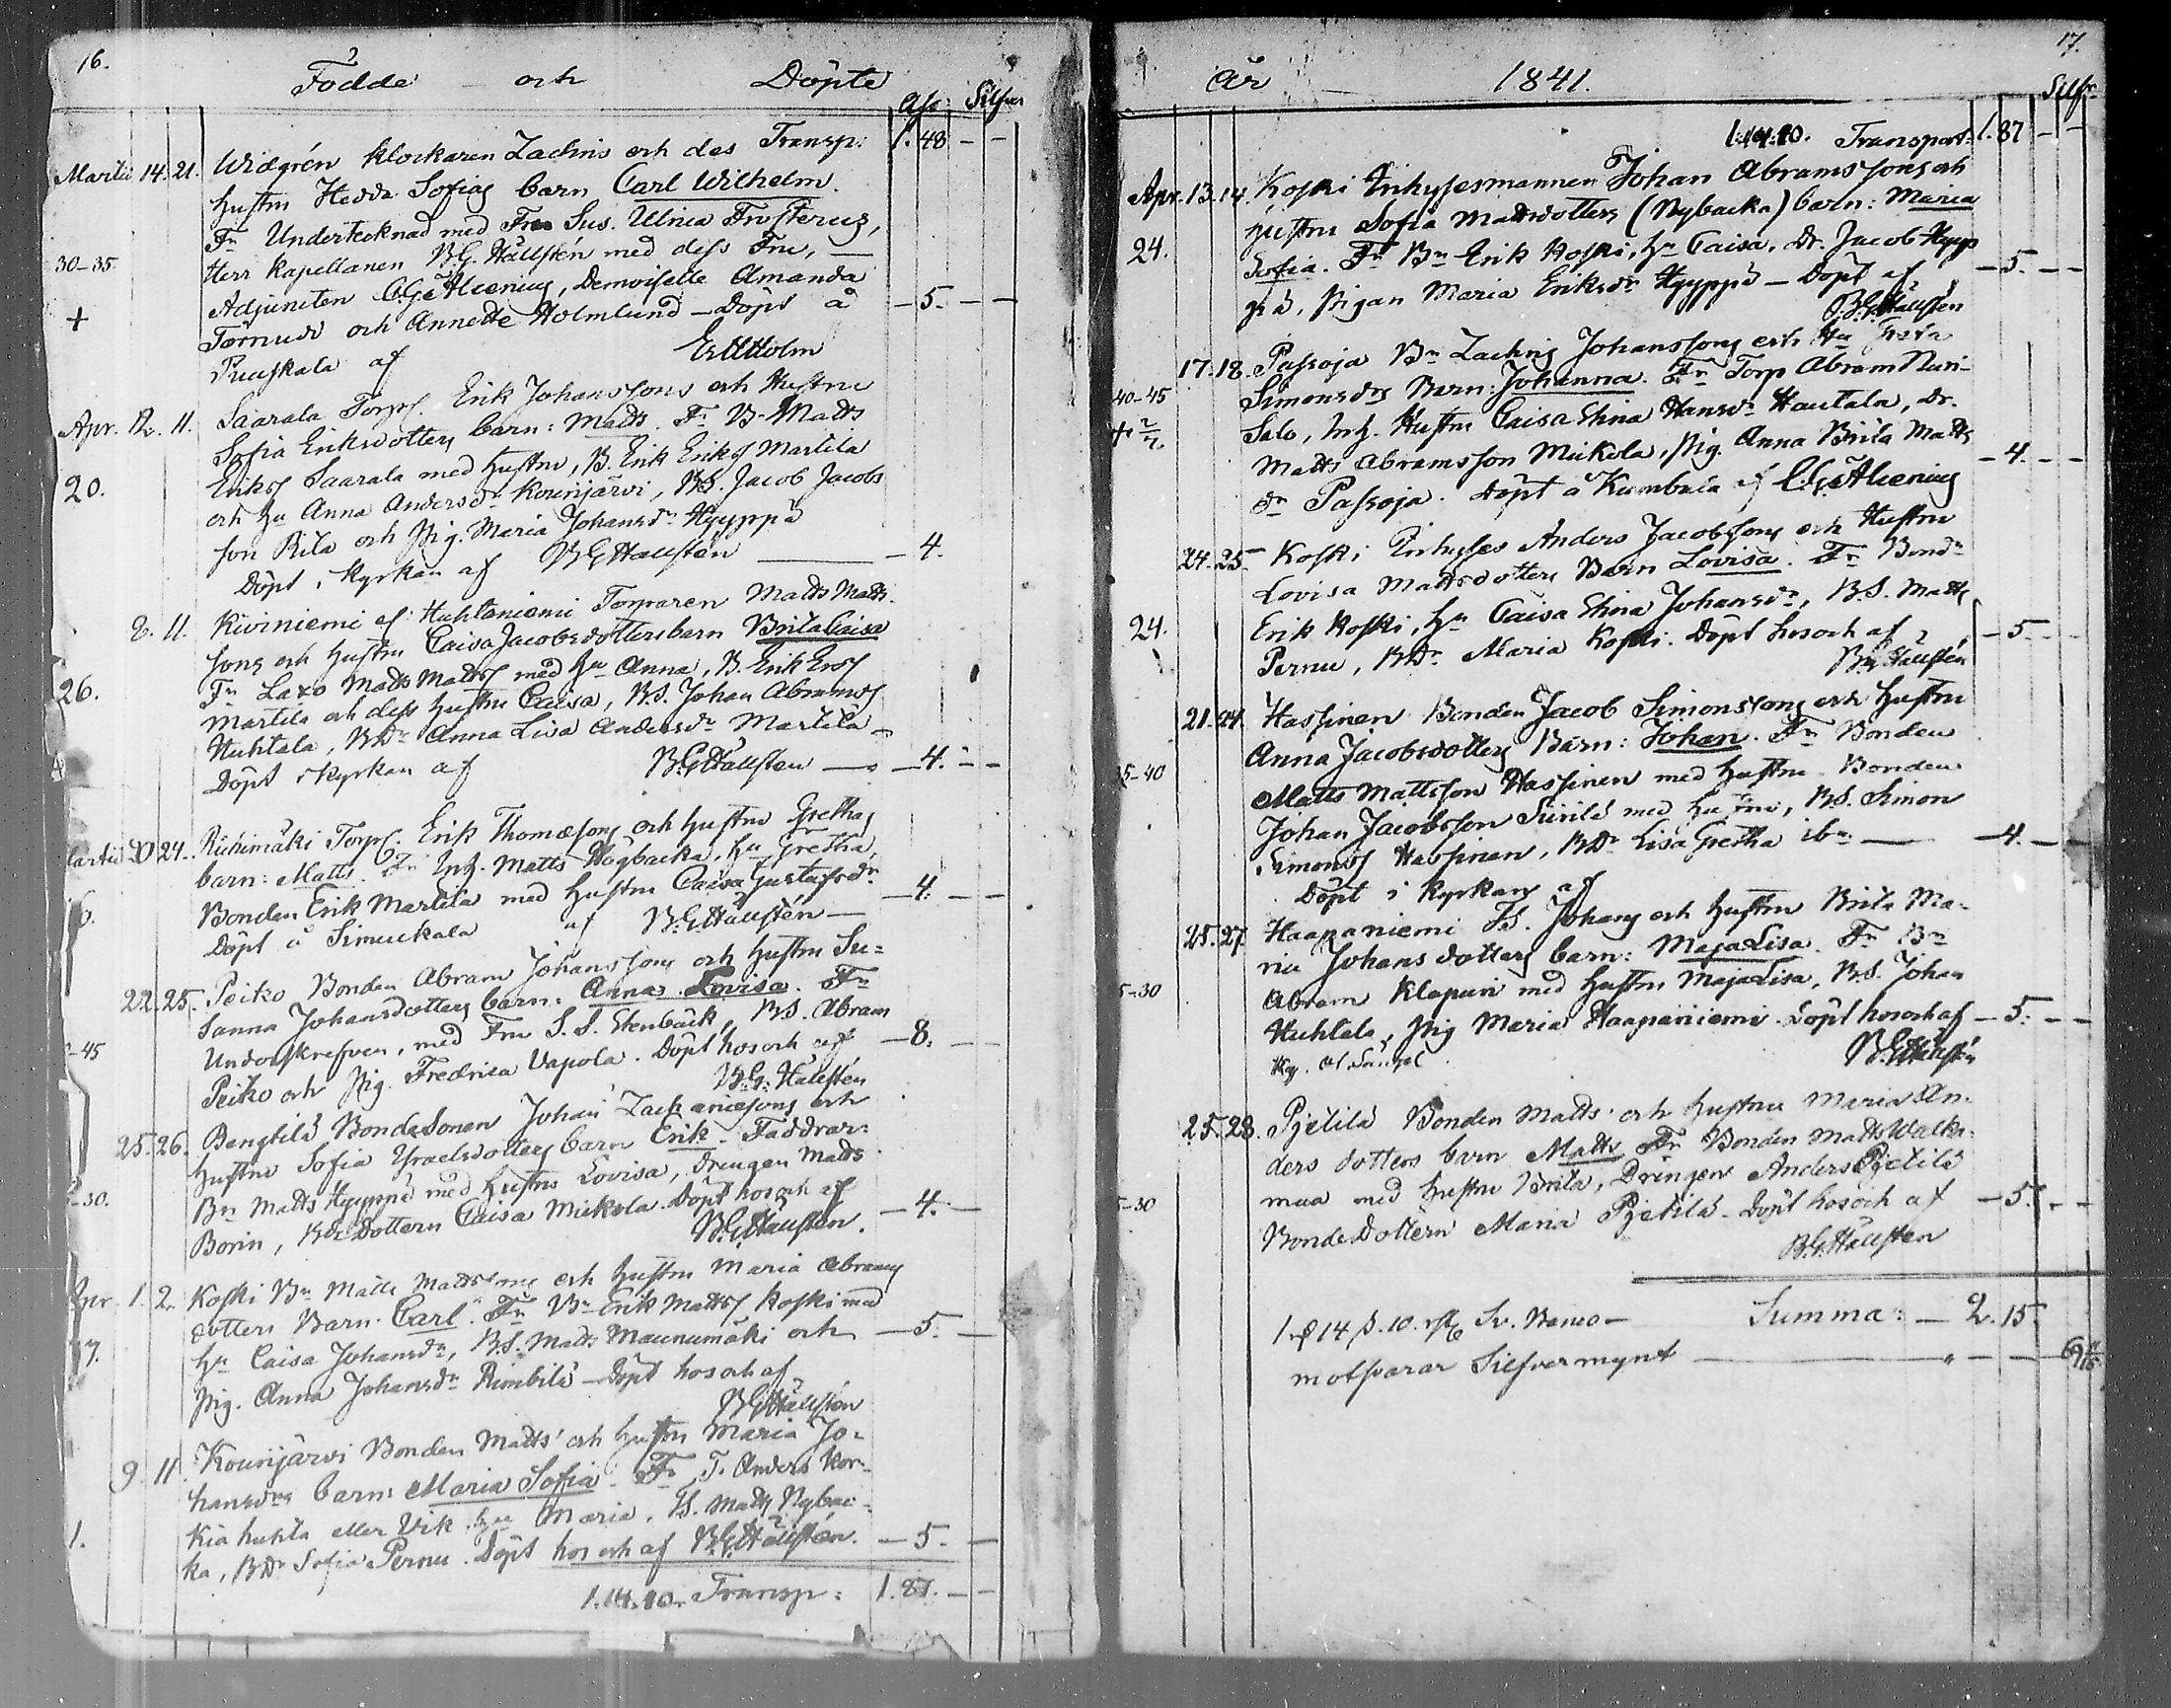 16.
Födde och Döpte
Ass: Silfver
Transp: 1. 48 - -
Martii 14. 21. Widgrén Klockaren Zachris och des
hustru Hedda Sofias barn Carl Wilhelm.
Fr Undertecknad med Fru Sus. Ulrica Frosterus,
30-35 Herr Kapellanen B.G. Hällstén med dess Fru,
Adjuncten C.G. Alcenius, Demoiselle Amanda
+ Törnudd och Annette Holmlund - Döpt å - 5. - -
Puuskala af
Apr. 12. 11. Saarala Torp. Erik Johanssons och Hustru
Sofia Eriksdotters barn: Matts. Fr. B. Matts
20. Eriks Saarala med hustru, B. Erik Eriks Martila
och hu Anna Andersdr Kounijärvi, BS. Jacob Jacobs
son Rita och Pig. Maria Johansdr Hyyppä
Döpt i Kyrkan af BGHällstén - 4.
8. 11. Kiviniemi af Huhtaniemi Torparen Matts Matts
sons och hustru Caisa Jacobsdotters barn Brita Caisa
26. Fr Laxo Matts Matts med hu Anna, B. Erik Ers
Martila och dess hustru Caisa, BS. Johan Abrams
Huhtala, BDr Anna Lisa Andersdr Martila
Döpt i Kyrkan af BGHällstén - 4. - -
Martii 20 24. Riihimäki Torp. Erik Thomæsons och hustru Grethas
barn: Matts. Fr Inh. Matts Högbacka, hu Gretha,
Bonden Erik Martila med hustru Caisa Gustafsdr - 4. - -
Döpt å Simuckala af BGHällstén
22. 25. Peiko Bonden Abram Johanssons och hustru Su-
sanna Johansdotters barn: Anna Lovisa. Fr
-45 Underskrefven, med Fru S. S. Stenbäck, BS. Abram - 8. -
Peiko och Pig. Fredrica Vapola. Döpt hos och af
B.G. Hällstén
25. 26. Bengtilä BondeSonen Johan Zachariæsons och
hustru Sofia Israelsdotters barn Erik. Faddrar:
-30. Bn Matts Hyyppä med hustru Lovisa, Drengen Matts
Borin, BdeDottern Caisa Mickola. Döpt hos och af - 4. -
B.G.Hällstén.
Apr. 1. 2. Koski Bn Matts Mattssons och hustru Maria Abrams
dotters Barn. Carl. Fr Bn Erik Matts Koski med
17. hu Caisa Johansdr, BS. Matts Maunumäki och - 5. -
Pig. Anna Johansdr Rimbilä - Döpt hos och af
BGHällstén
9. 11. Kounijärvi Bonden Matts' och hustru Maria Jo-
hansdrs barn: Maria Sofia. Fr T. Anders Kor-
1. kiahuhta eller Vik hu Maria, TS. Matts Nybac-
ka, BDr Sofia Pernu. Döpt hos och af B.G.Hällstén. - 5. -
1.14.10. Transp: 1. 87. - -
17.
år 1841.
Silfr
1.14.10. Transport: 1. 87 - -
Apr. 13. 14. Koski Inhysesmannen Johan Abramssons och
hustru Sofia Mattsdotters (Nybacka) barn: Maria
24. Sofia. Fr Bn Erik Koski, hu Caisa, Dr. Jacob Hyyp
pä, Pigan Maria Eriksdr Hyyppä - Döpt af - 5. - -
B.G.Hällstén
17. 18. Passoja Bn Zachris Johanssons och Hu Greta
40-45 Simonsdrs Barn: Johanna. Fr Torp Abram Nuri-
Salo, Inh. Hustru Caisa Stina Hansdr Hautala, Dr.
Matts Abramsson Mickola, Pig. Anna Brita Matts - 4. - -
dr Passoja. Döpt å Kumbula af C.G.Alcenius
24. 25. Koski Inhyses Anders Jacobssons och Hustru
Lovisa Mattsdotters Barn Lovisa. Fr Bond
24. Erik Koski, hu Caisa Stina Johansdr, B.S. Matts
Pernu, BDr Maria Koski. Döpt hos och af - 5. - -
BGHällstén
21. 24. Hassinen Bonden Jacob Simonssons och hustru
Anna Jacobsdotters Barn: Johan. Fr Bonden
35-40 Matts Mattsson Hassinen med hustru Bonden
Johan Jacobsson Sirilä med hustru, BS. Simon
Simons Hassinen, BDr Lisa Gretha ibm - 4. - -
Döpt i Kyrkan af
25. 27. Haapaniemi TS. Johans och hustru Brita Ma-
ria Johansdotters barn: MajaLisa. Fr Bn
5-30 Abram Klapuri med hustru MajaLisa, BS. Johan
Huhtala, Pig Maria Haapaniemi. Döpt hos och af - 5. - -
BGHällstén
25. 28. Pjetilä Bonden Matts' och hustru Maria An-
ders dotters barn Matts Fr Bonden Matts Walka-
maa med hustru Brita, Drengen Anders Pjetilä
5-30 BondeDottern Maria Pjetilä. Döpt hos och af - 5. - -
B.G.Hällstén
1. 14 s. 10. Sv. Banco - Summa: - 2. 15.
motsvarar Silfvermynt